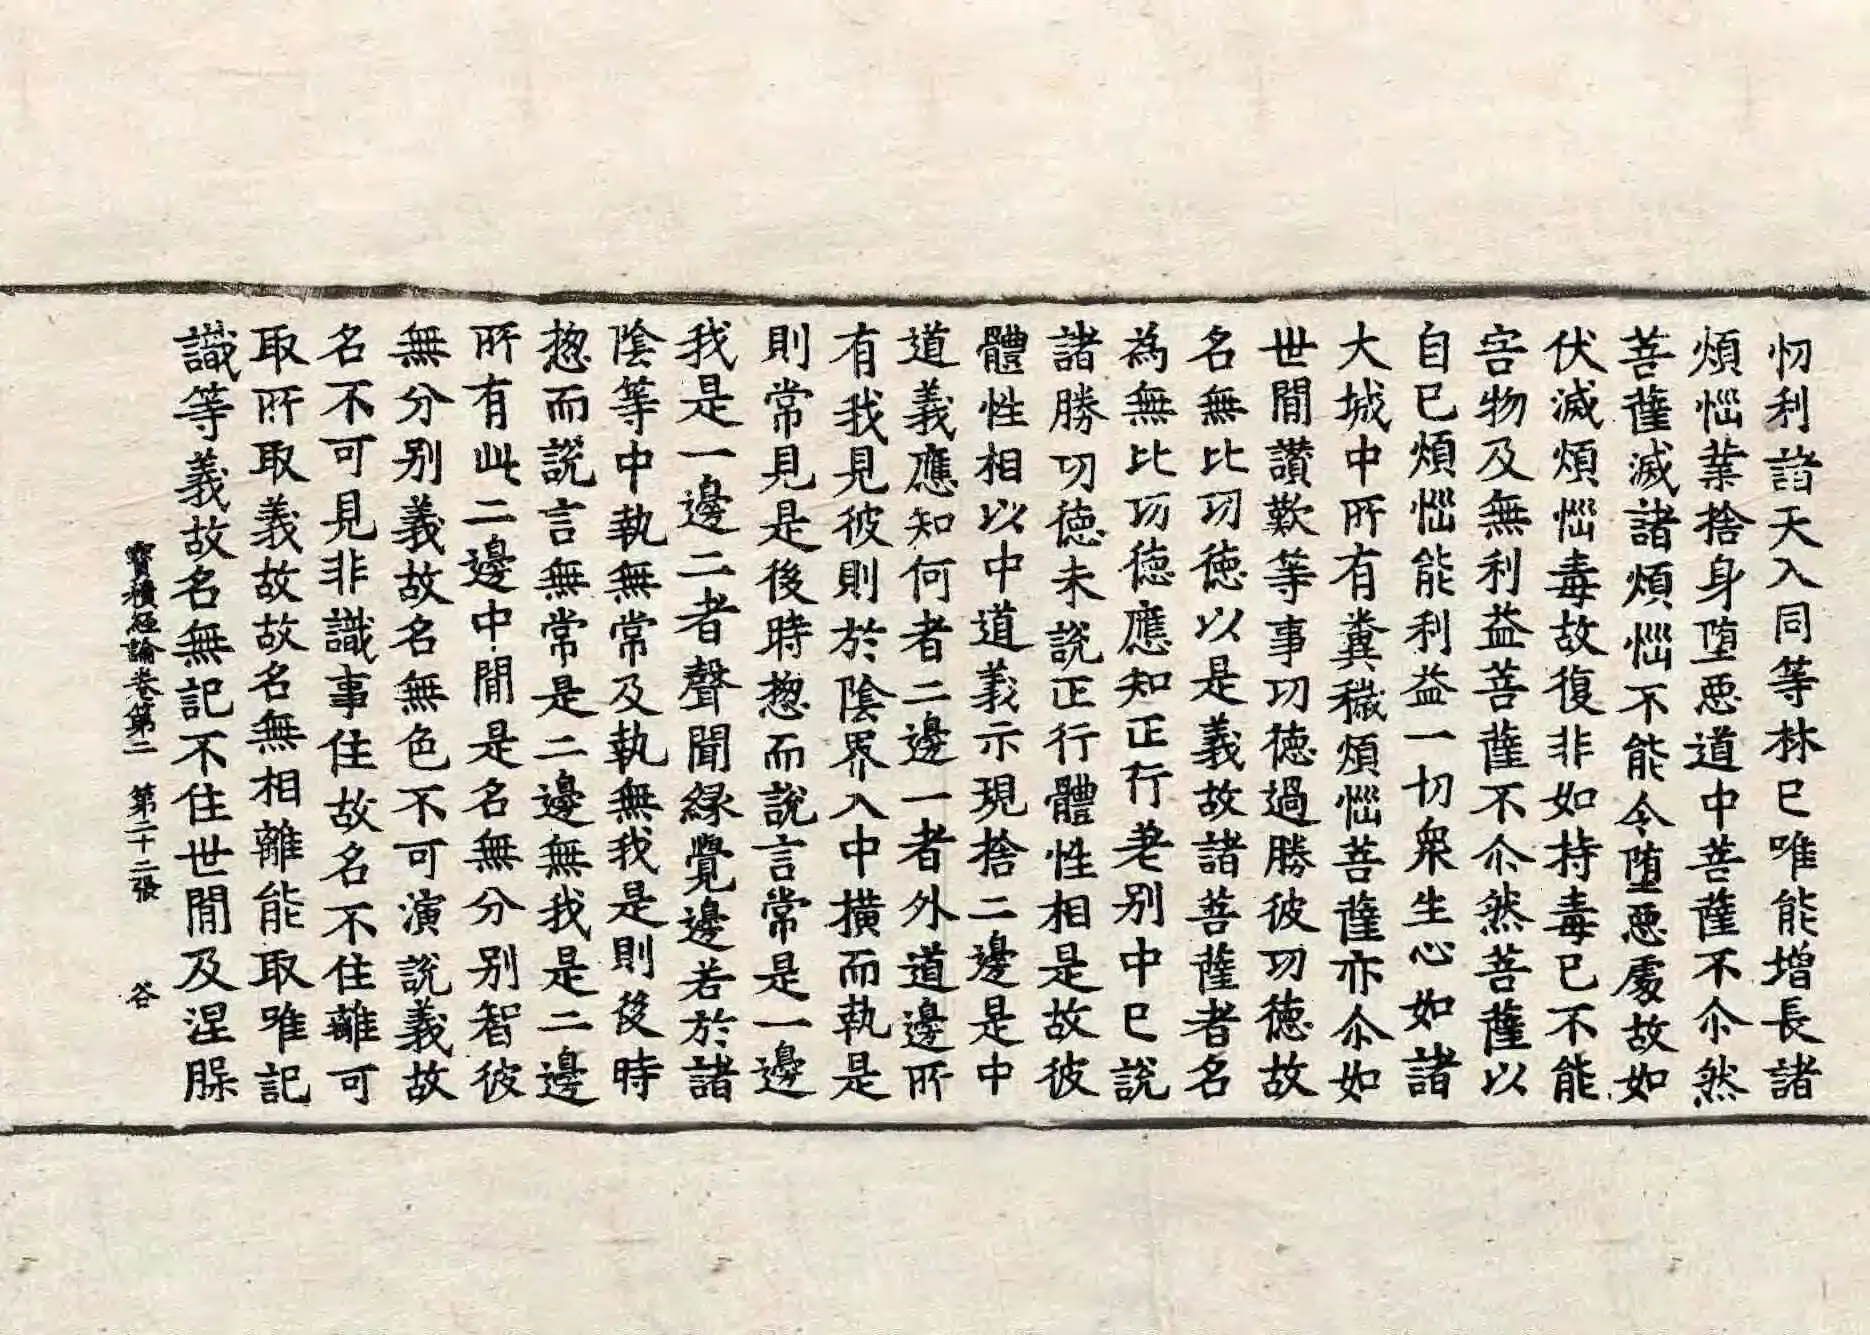 忉利諸天入同等林已唯能增長諸
煩惱業捨身堕惡道中菩薩不尒然
菩薩滅諸煩惱不能令堕惡處故如
伏滅煩惱毒故復非如持毒已不能
害物及無利益菩薩不尒然菩薩以
自已煩惱能利益一切衆生心如諸
大城中所有糞穢煩惱菩薩亦尒如
世閒讃歎等事功德過勝彼功德故
名無比功德以是義故諸菩薩者名
為無比功德應知正行差别中已說
諸勝功德未說正行體性相是故彼
體性相以中道義示現捨二邊是中
道義應知何者二邊一者外道邊所
有我見彼則於陰界入中横而執是
則常見是後時揔而說言常是一邊
我是一邊二者聲聞緣覺邊若於諸
陰等中執無常及執無我是則後時
揔而說言無常是二邊無我是二邊
所有此二邊中閒是名無分别智彼
無分别義故名無色不可演說義故
名不可見非識事住故名不住離可
取所取義故故名無相離能取唯記
識等義故名無記不住世閒及涅槃
寶積經論卷第二 第二十二張 谷